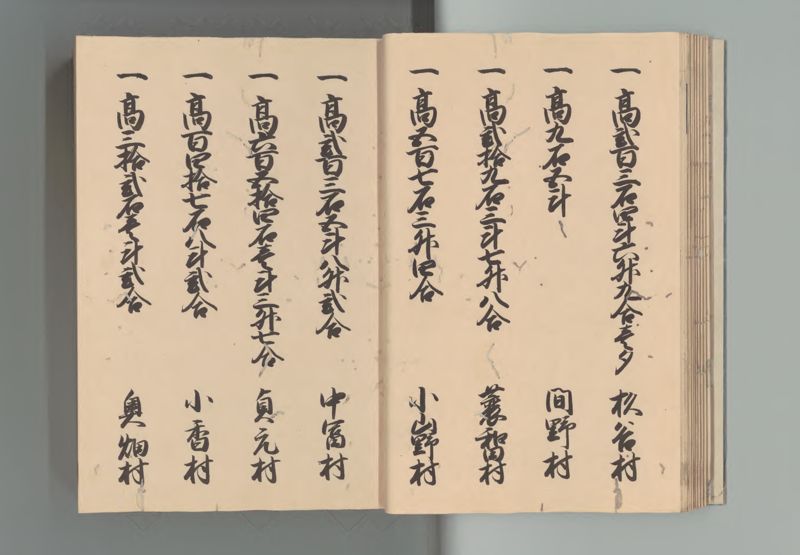 一 高弐百三石四斗六升九合壱夕 杉谷村
一 高九石五斗 間野村
一 高弐拾九石三斗七升八合 蓑和田村
一 高五百七石三升四合 小山野村
一 高弐百三石五斗八升弐合 中富村
一 高六百五拾四石壱斗三升七合 貞元村
一 高百四拾七石八斗弐合 小香村
一 高三拾弐石壱斗弐合 奥畑村